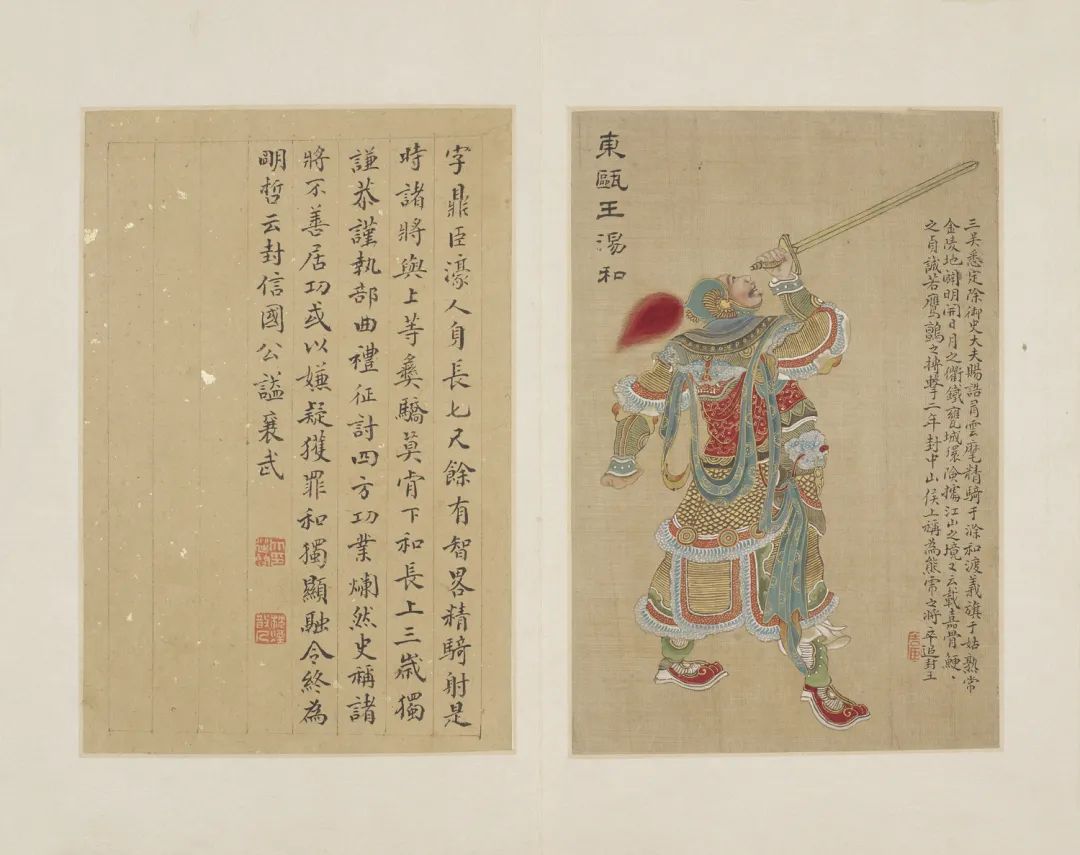 東甌王湯和
三吴悉定除御史大夫賜誥有雲麾精騎于滁和渡義旗于姑熟常
金陵地闢明開日月之衢鐵甕城環險據江山之境又云載嘉骨鯁、
之貞誠若鷹鸇之搏擊二年封中山侯上稱為熊之將卒追封王
字鼎臣濠人身長七尺餘有智畧精騎射是
時諸將與上等彝驕莫肯下和長上三歲獨
謙恭謹執部曲禮征討四方功業爛然史稱諸
將不善居功或以嫌疑獲罪和獨顯融令終為
明哲云封信國公謚襄武